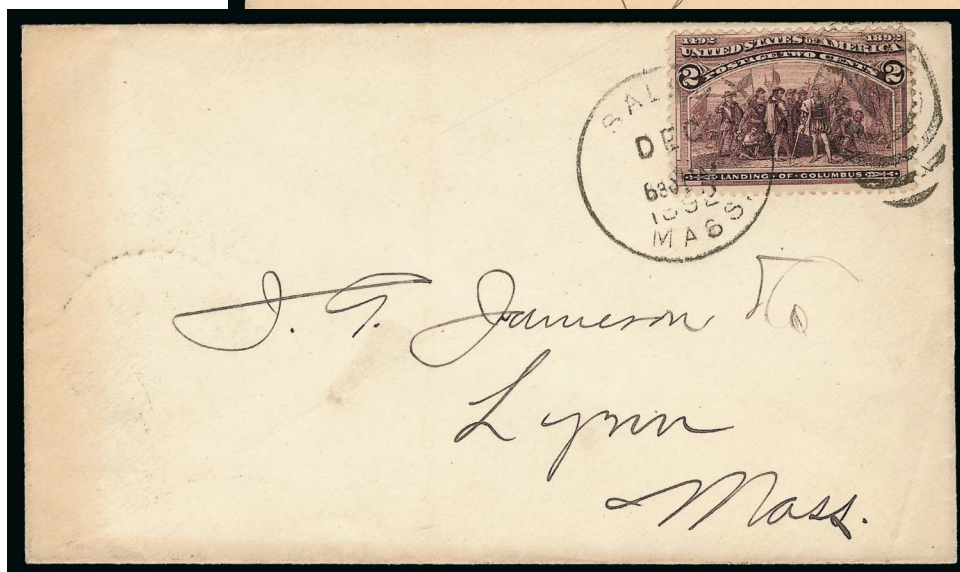 1492 1892
UNITED STATES OF AMERICA
POSTAGE TWO CENTS
2 2
LANDING OF COLUMBUS
DEC
1892
MASS.
J. T. Jameson
Lynn
Mass.